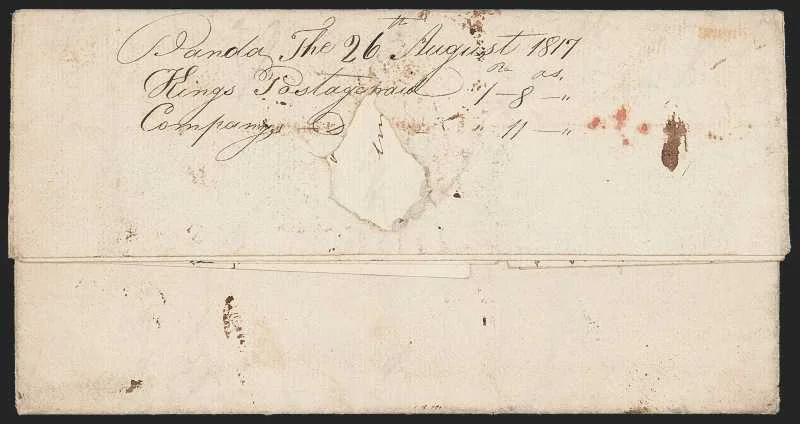 Banda The 26th August 1817
Rs as.
Kings Postage paid " 1 – 8 – "
Companys D " 11 – "